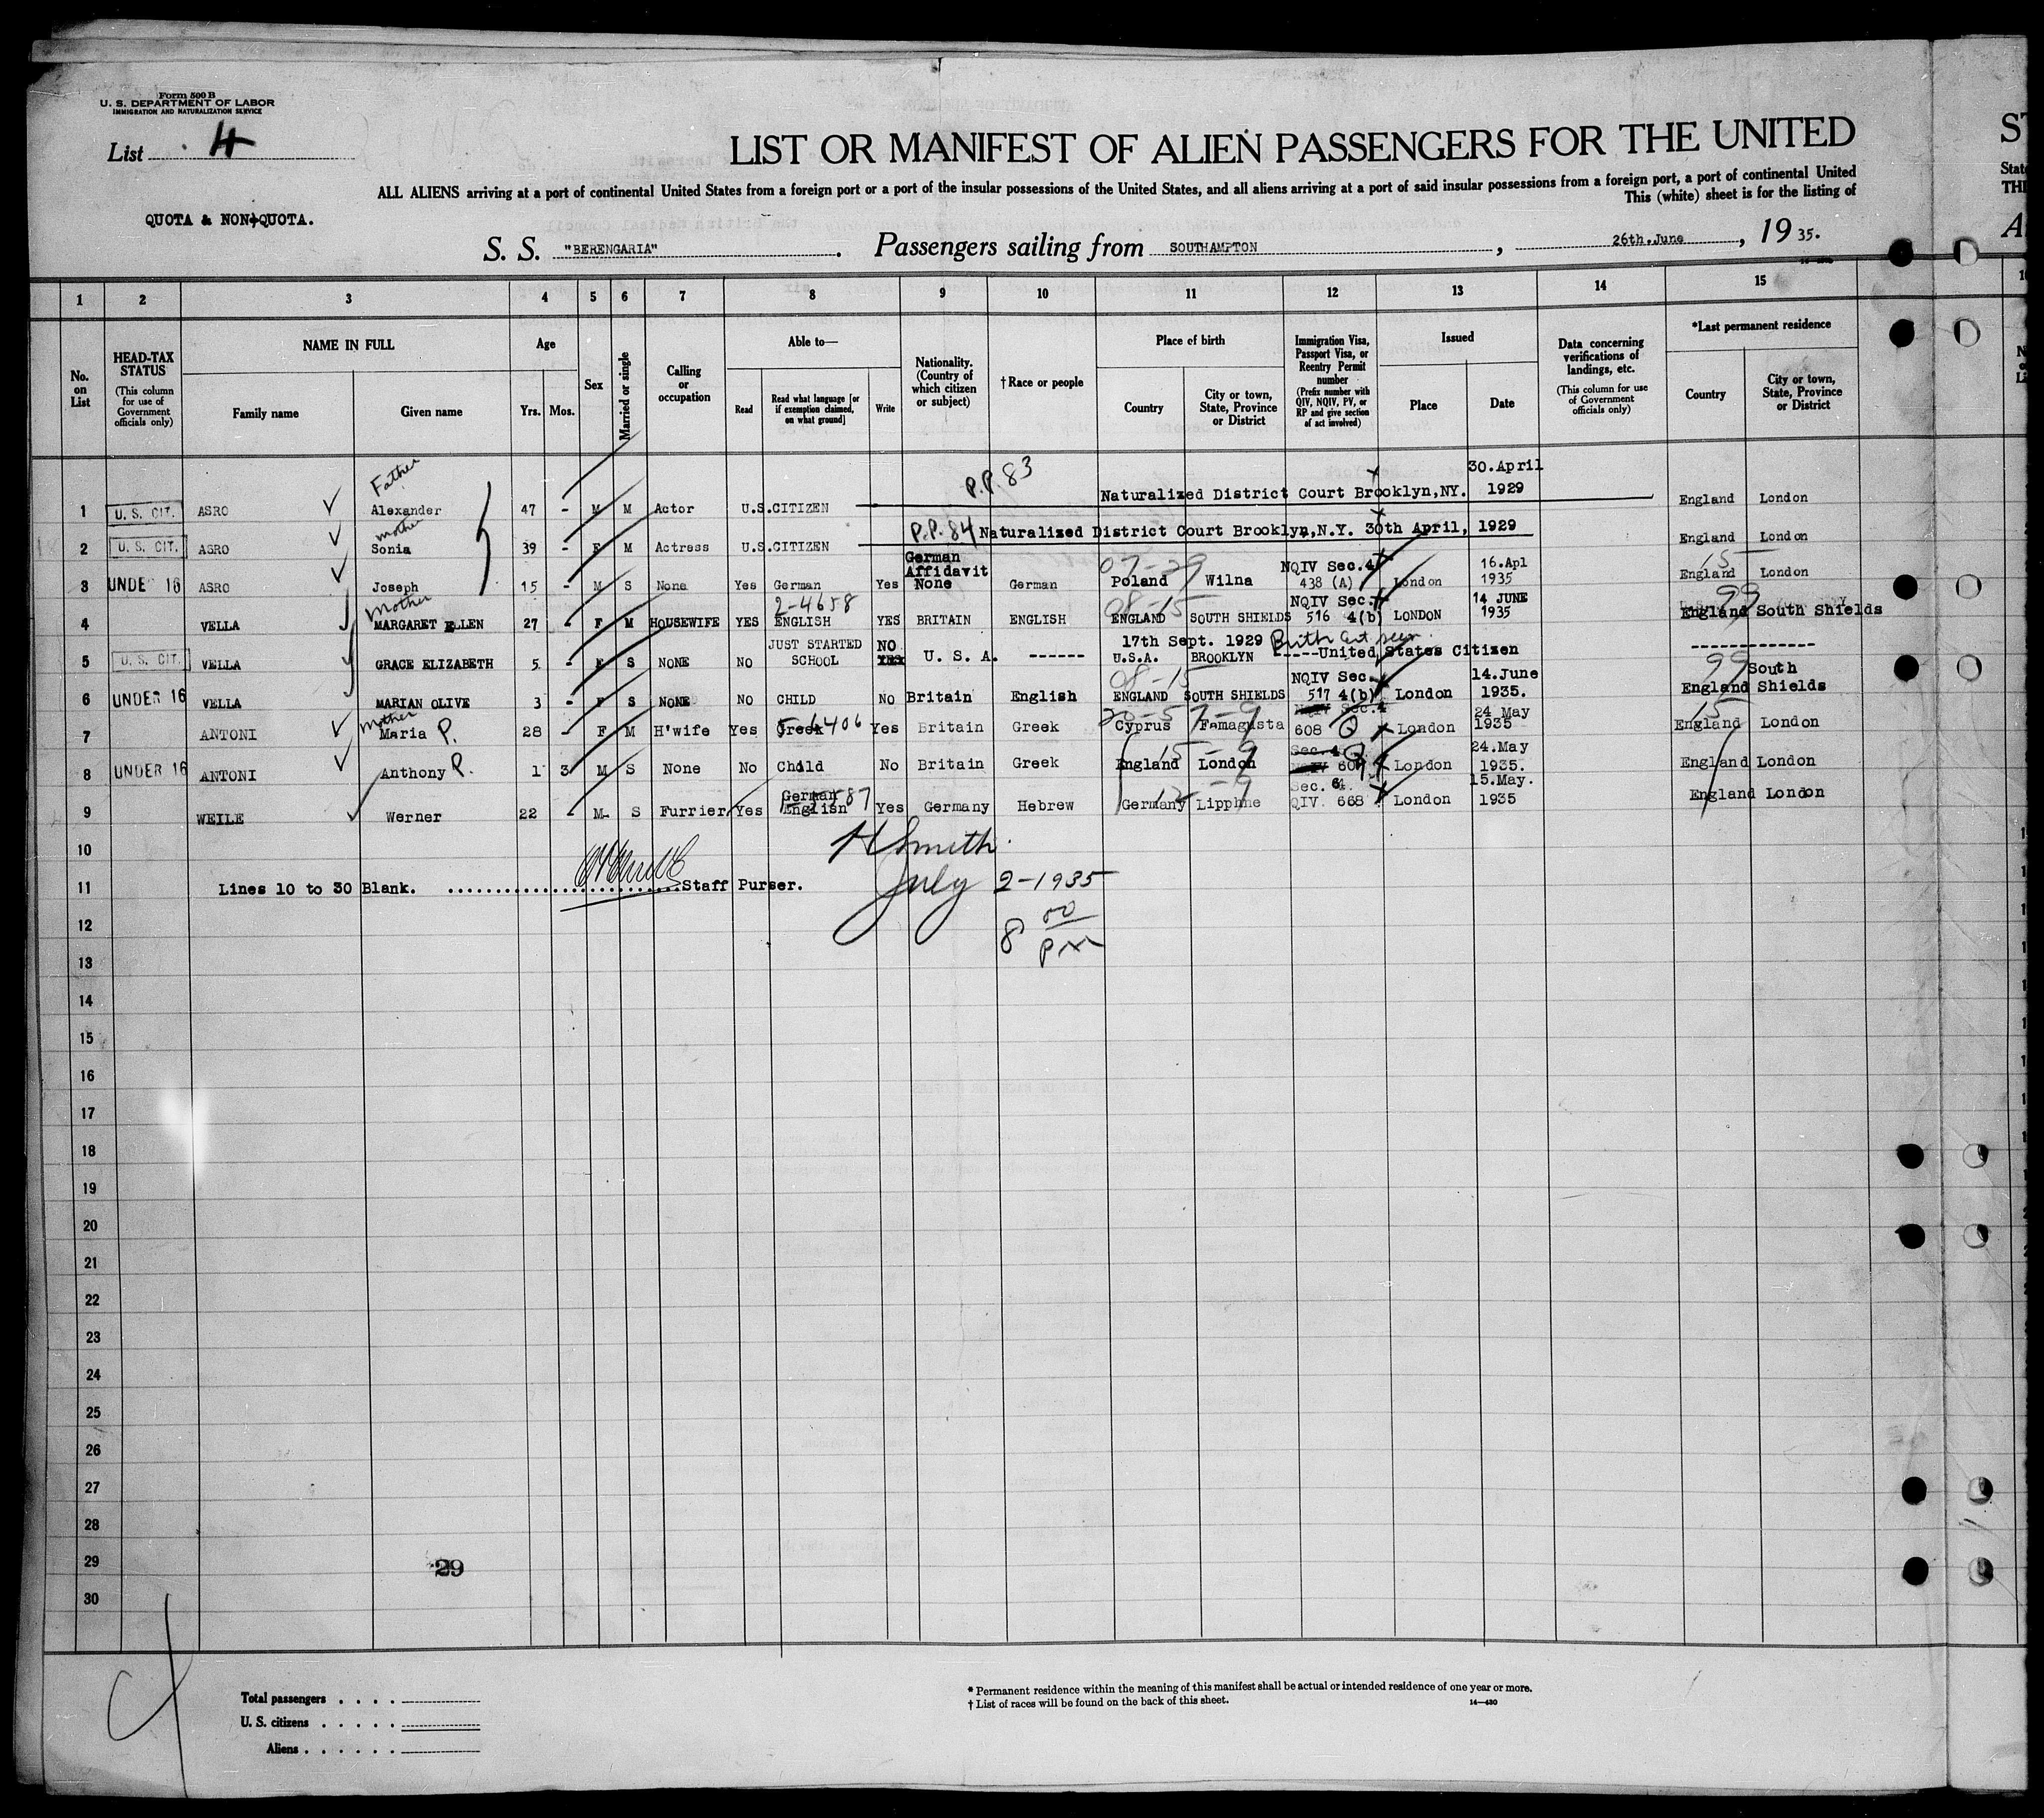 Form 500 B
U. S. DEPARTMENT OF LABOR
IMMIGRATION AND NATURALIZATION SERVICE
List 4
LIST OR MANIFEST OF ALIEN PASSENGERS FOR THE UNITED
ST
ALL ALIENS arriving at a port of continental United States from a foreign port or a port of the insular possessions of the United States, and all aliens arriving at a port of said insular possessions from a foreign port, a port of continental United
State
This (white) sheet is for the listing of
THI
QUOTA & NON-QUOTA.
S. S. "BERENGARIA". Passengers sailing from SOUTHAMPTON, 26th.June, 1935.
1 2 3 4 5 6 7 8 9 10 11 12 13 14 15
No. on List
HEAD-TAX STATUS (This column for use of Government officials only)
NAME IN FULL
Family name Given name
Age
Yrs. Mos.
Sex
Married or single
Calling or occupation
Able to—
Read Read what language [or if exemption claimed, on what ground] Write
Nationality. (Country of which citizen or subject)
† Race or people
Place of birth
Country City or town, State, Province or District
Immigration Visa, Passport Visa, or Reentry Permit number (Prefix number with QIV, NQIV, PV, or RP and give section of act involved)
Issued
Place Date
Data concerning verifications of landings, etc. (This column for use of Government officials only)
*Last permanent residence
Country City or town, State, Province or District
Father P.P. 83 30.April
1 U. S. CIT. ASRO Alexander 47 - M M Actor U.S.CITIZEN Naturalized District Court Brooklyn,NY. 1929 England London
mother
2 U. S. CIT. ASRO Sonia 39 - F M Actress U.S.CITIZEN P.P. 84 Naturalized District Court Brooklyn,N.Y. 30th April, 1929 England London
German Affidavit 07-29 NQIV Sec.4 16.Apl 15
3 UNDER 16 ASRO Joseph 15 - M S None Yes German Yes None German Poland Wilna 438 (A) London 1935 England London
Mother 2-4658 08-15 NQIV Sec. 14 JUNE 99
4 VELLA MARGARET ELLEN 27 - F M HOUSEWIFE YES ENGLISH YES BRITAIN ENGLISH ENGLAND SOUTH SHIELDS 516 4(b) LONDON 1935 England South Shields
JUST STARTED NO 17th Sept. 1929 Birth Cert seen.
5 U. S. CIT. VELLA GRACE ELIZABETH 5 - F S NONE NO SCHOOL YES U. S. A. ------ U.S.A. BROOKLYN -----United States Citizen -------------
08-15 NQIV Sec. 14.June 99 South
6 UNDER 16 VELLA MARIAN OLIVE 3 - F S NONE NO CHILD NO Britain English ENGLAND SOUTH SHIELDS 517 4(b) London 1935. England Shields
mother NQIV Sec.4 24 May 15
7 ANTONI Maria P. 28 - F M H'wife Yes Greek Yes Britain Greek Cyprus Famagusta 608 Q London 1935 England London
Sec.4 24.May
8 UNDER 16 ANTONI Anthony P. 1 3 M S None No Child No Britain Greek England London London 1935. England London
German Sec. 15.May.
9 WEILE Werner 22 - M S Furrier Yes English Yes Germany Hebrew Germany Lipphne QIV. 668 London 1935 England London
10 H Smith
11 Lines 10 to 30 Blank. ........................Staff Purser. July 2-1935
12 8 00
13 pm
14
15
16
17
18
19
20
21
22
23
24
25
26
27
28
29 29
30
Total passengers . . . .
U. S. citizens . . . . .
Aliens . . . . . .
* Permanent residence within the meaning of this manifest shall be actual or intended residence of one year or more.
† List of races will be found on the back of this sheet. 14—430